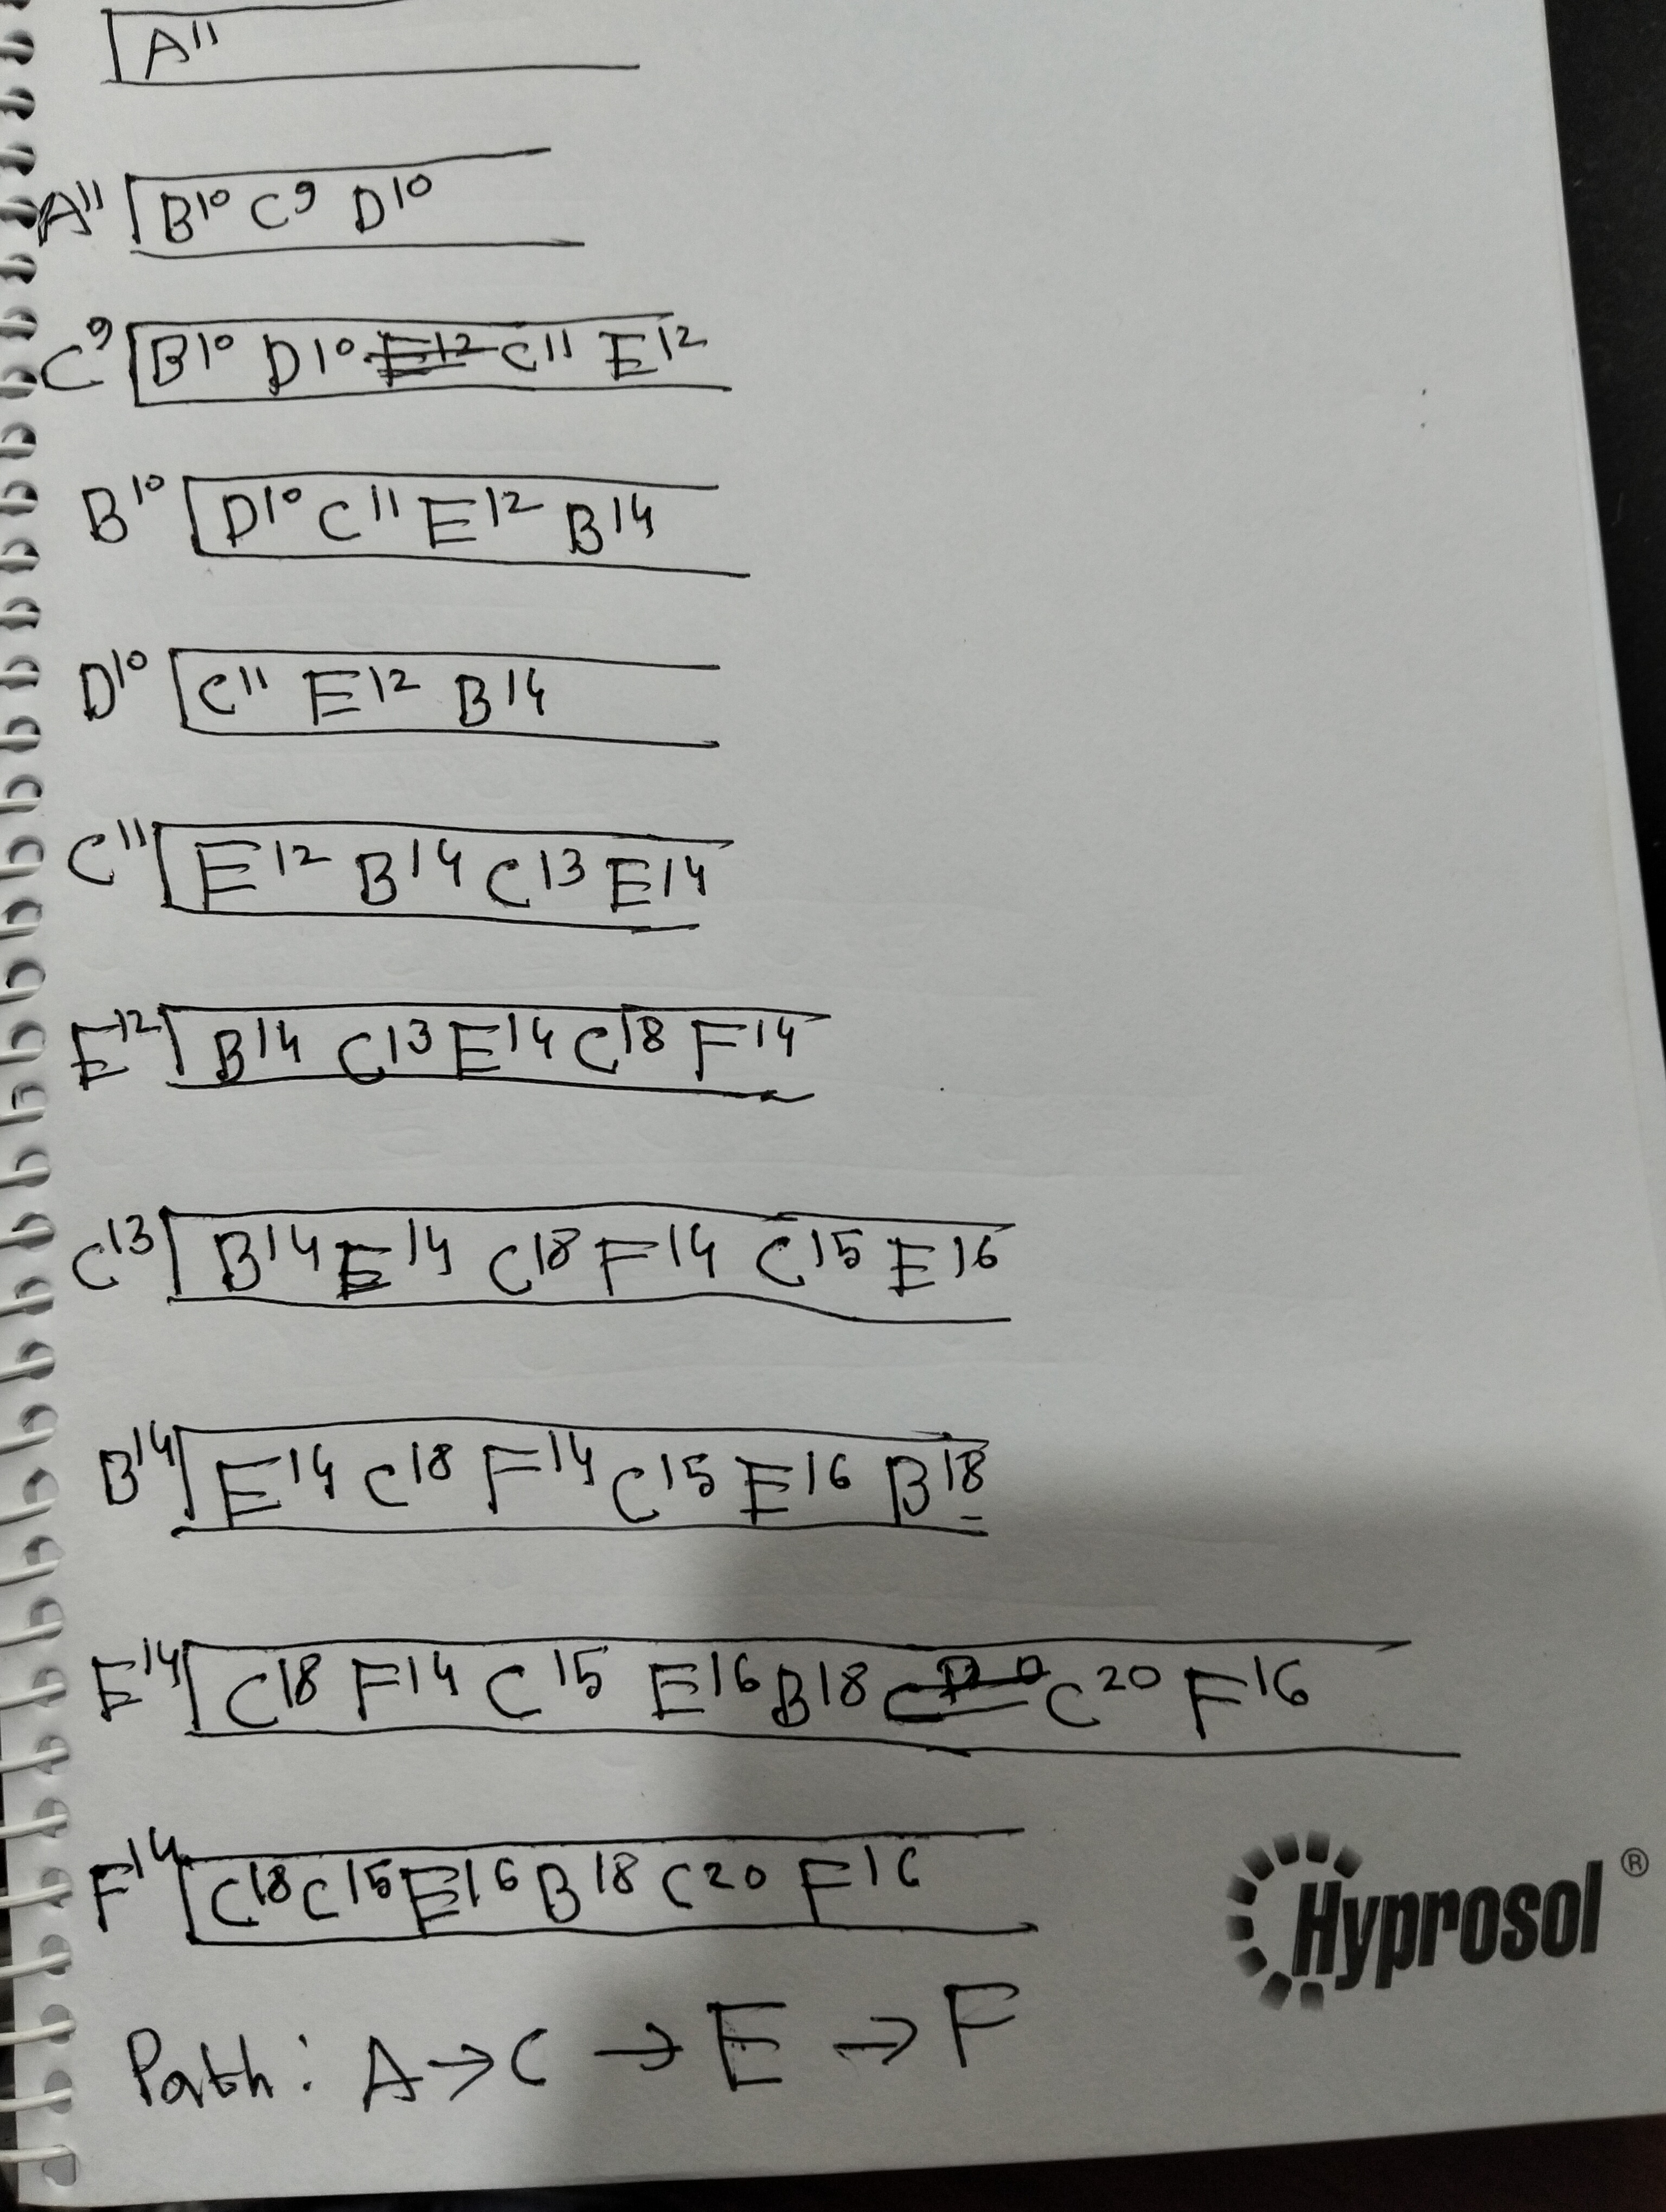 A11
A11 B10 C9 D10
C9 B10 D10 E12 C11 E12
B10 D10 C11 E12 B14
D10 C11 E12 B14
C11 E12 B14 C13 E14
E12 B14 C13 E14 C18 F14
C13 B14 E14 C18 F14 C15 E16
B14 E14 C18 F14 C15 E16 B18
E14 C18 F14 C15 E16 B18 C20 F16
F14 C18 C15 E16 B18 C20 F16
Hyprosol®
Path: A → C → E → F